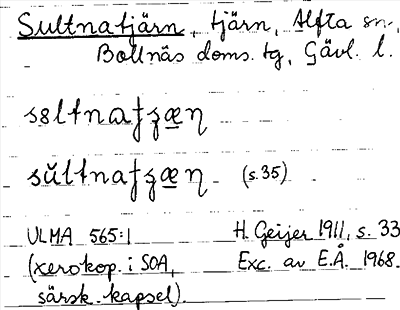 Sultnatjärn, tjärn, Alfta sn,
Bollnäs doms. tg, Gävl. l.
sultnatʒæn
sŭltnatʒæn (s. 35)
ULMA 565:1 H. Geijer 1911, s. 33
(xerokop. i SOA, Exc. av E.Å. 1968.
särsk. kapsel).